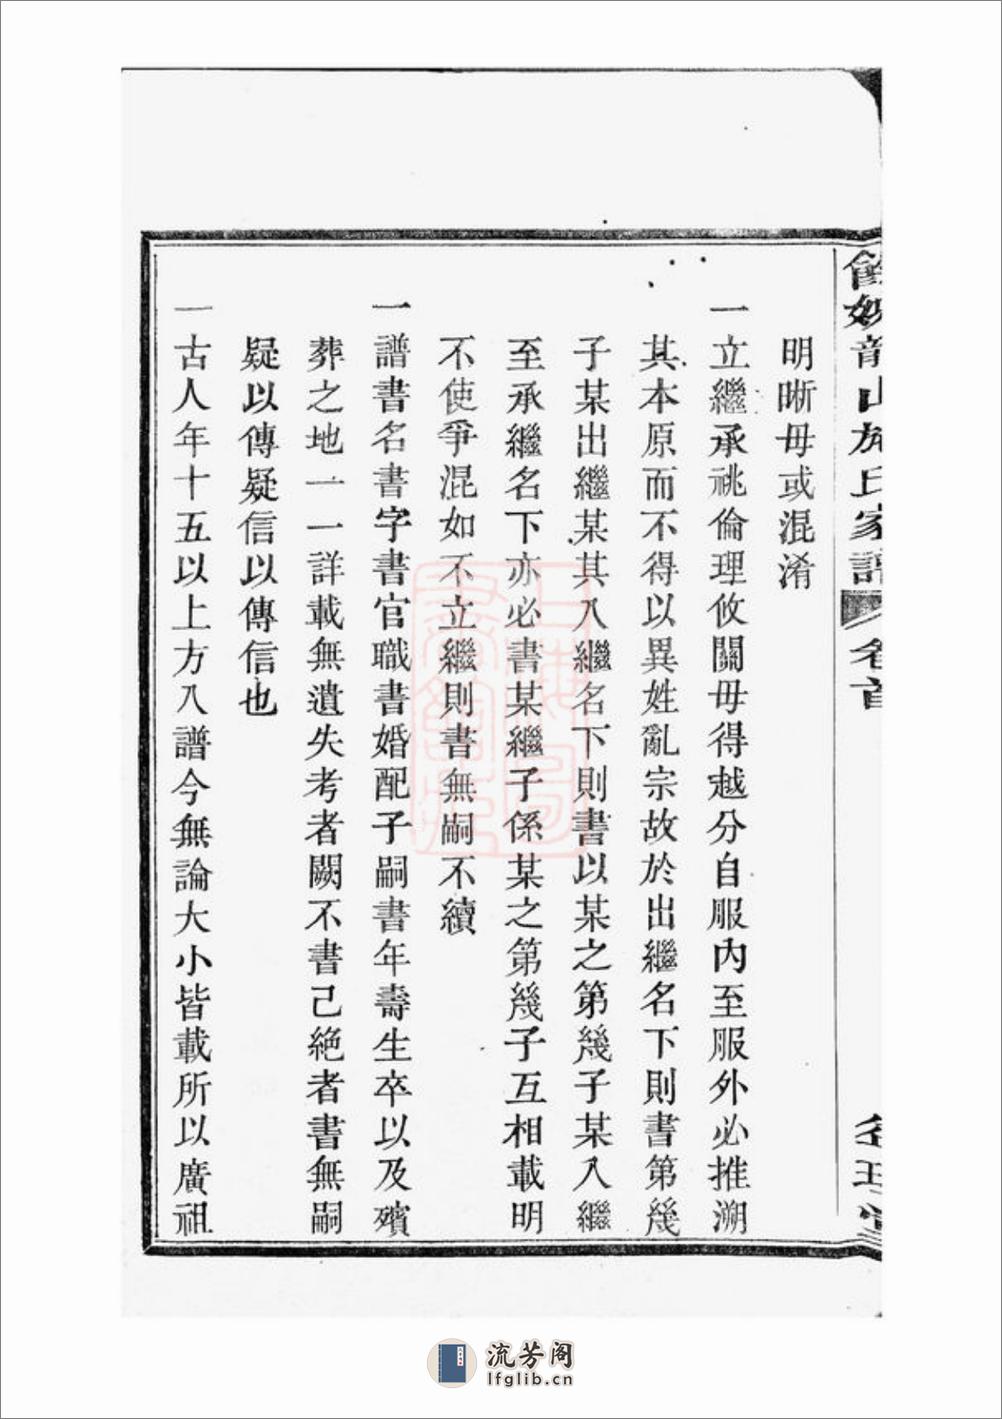 餘姚龍山施氏家譜 卷首
明晰毋或混淆
一立繼承祧倫理攸關毋得越分自服內至服外必推溯
其本原而不得以異姓亂宗故於出繼名下則書第幾
子某出繼某其入繼名下則書以某之第幾子某入繼
至承繼名下亦必書某繼子係某之第幾子互相載明
不使爭混如不立繼則書無嗣不續
一譜書名書字書官職書婚配子嗣書年壽生卒以及殯
葬之地一一詳載無遺失考者闕不書已絕者書無嗣
疑以傳疑信以傳信也
一古人年十五以上方入譜今無論大小皆載所以廣祖
流芳阁
lfglib.cn